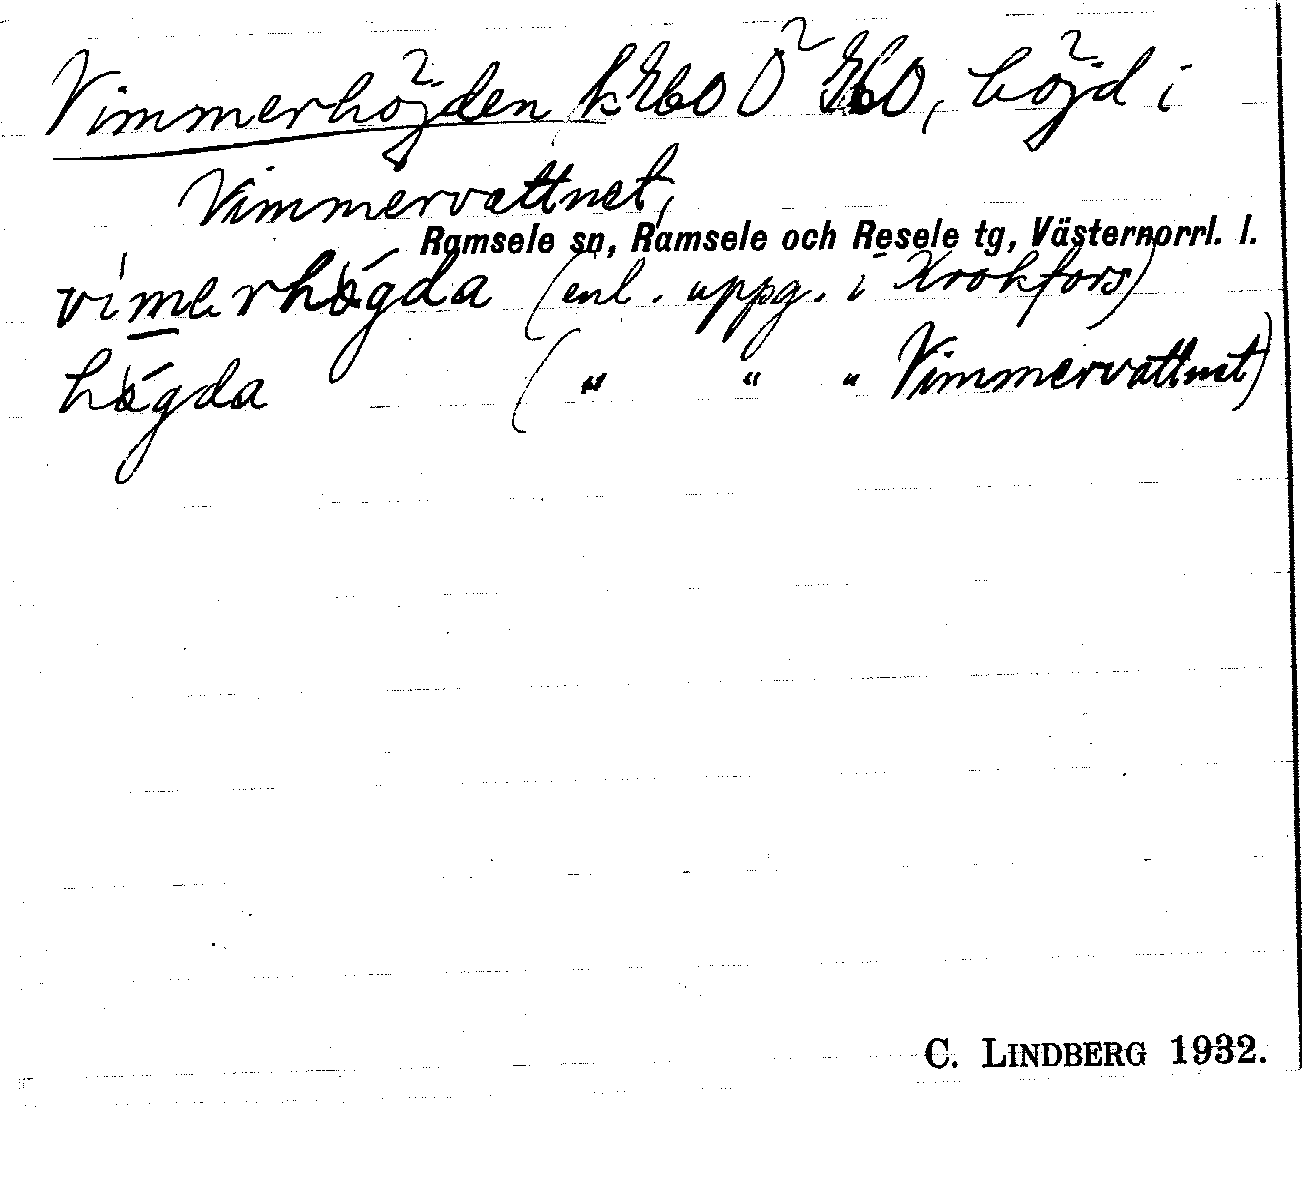 Vimmerhöjden, k 260 Ö 260, höjd i
Vimmervattnet,
Ramsele sn, Ramsele och Resele tg, Västernorrl. l.
vimerhögda (enl. uppg. i Krokfors)
högda ( " " " Vimmervattnet)
C. LINDBERG 1932.